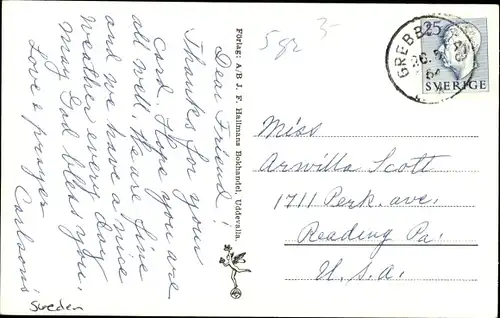 Dear Friend!
Thanks for your
card. Hope you are
all well. We are fine
and we have a nice
weather every day
May God bless you.
Love & prayer
Carlsons
Sweden
Förlag: A/B J. F. Hallmans Bokhandel, Uddevalla.
5 gr
3-
25
GREBBESTAD
SVERIGE
Miss
Arwilla Scott
1711 Perk. ave.
Reading Pa.
U.S.A.